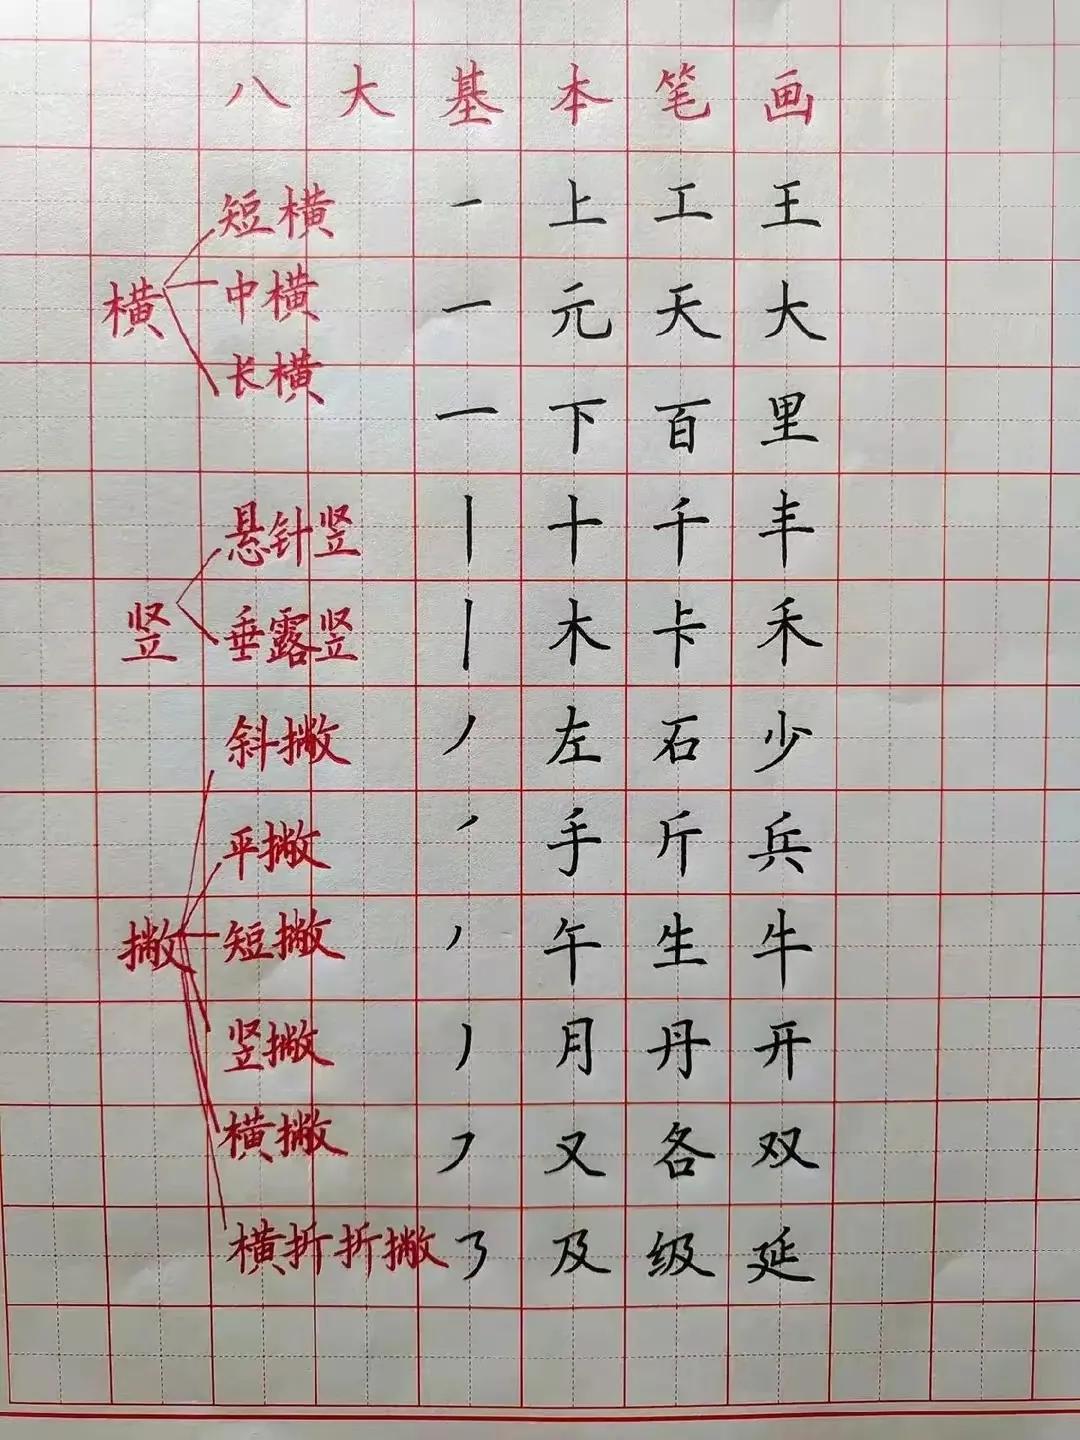 八大基本笔画
短横 ㇐ 上 工 王
横 中横 一 元 天 大
长横 一 下 百 里
悬针竖 丨 十 千 丰
竖 垂露竖 丨 木 卡 禾
斜撇 丿 左 石 少
平撇 ㇒ 手 斤 兵
撇 短撇 ㇒ 午 生 牛
竖撇 ㇓ 月 丹 开
横撇 ㇇ 又 各 双
横折折撇 ㇋ 及 级 延